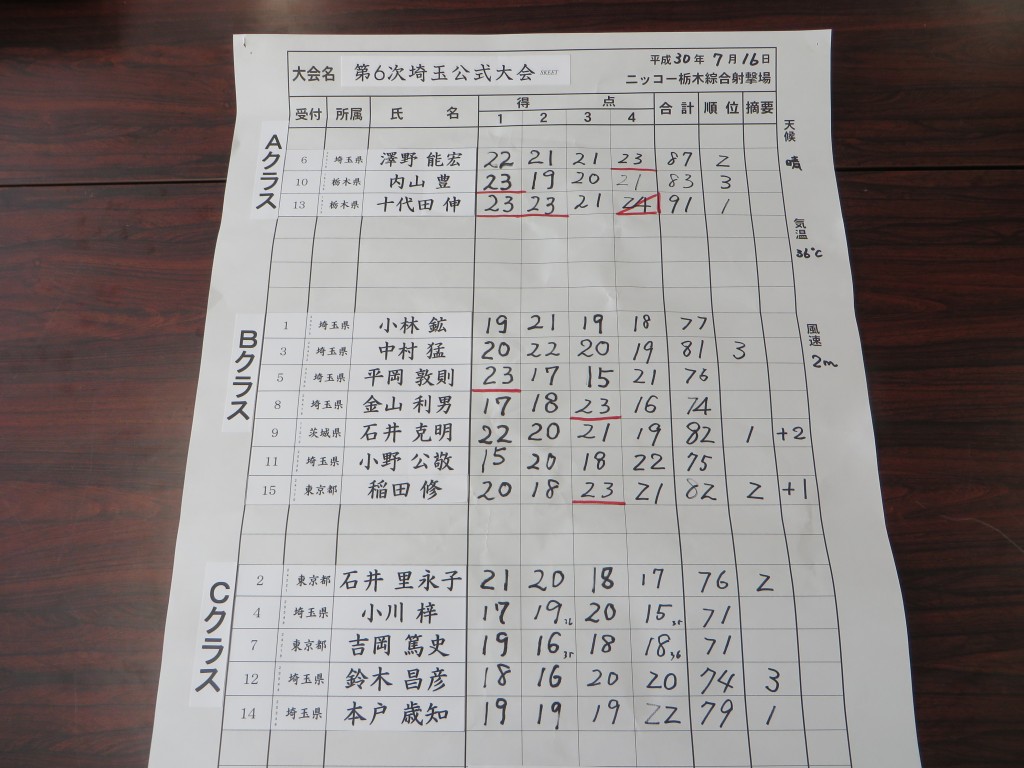 平成30年 7月16日
大会名 第6次埼玉公式大会 SKEET ニッコー栃木綜合射撃場
受付 所属 氏 名 得 点 合計 順位 摘要
1 2 3 4
天候 晴
気温 36℃
風速 2m
Aクラス
6 埼玉県 澤野 能宏 22 21 21 23 87 2
10 栃木県 内山 豊 23 19 20 21 83 3
13 栃木県 十代田 伸 23 23 21 24 91 1
Bクラス
1 埼玉県 小林 鉱 19 21 19 18 77
3 埼玉県 中村 猛 20 22 20 19 81 3
5 埼玉県 平岡 敦則 23 17 15 21 76
8 埼玉県 金山 利男 17 18 23 16 74
9 茨城県 石井 克明 22 20 21 19 82 1 +2
11 埼玉県 小野 公敬 15 20 18 22 75
15 東京都 稲田 修 20 18 23 21 82 2 +1
Cクラス
2 東京都 石井 里永子 21 20 18 17 76 2
4 埼玉県 小川 梓 17 19 20 15 71
7 東京都 吉岡 篤史 19 16 18 18 71
12 埼玉県 鈴木 昌彦 18 16 20 20 74 3
14 埼玉県 本戸 歳知 19 19 19 22 79 1